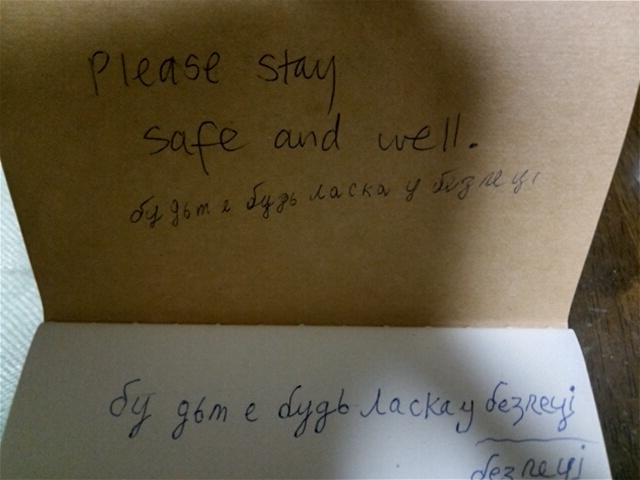 Please stay
safe and well.
будьте будь ласка у безпеці
будьте будь ласка у безпеці
безпеці